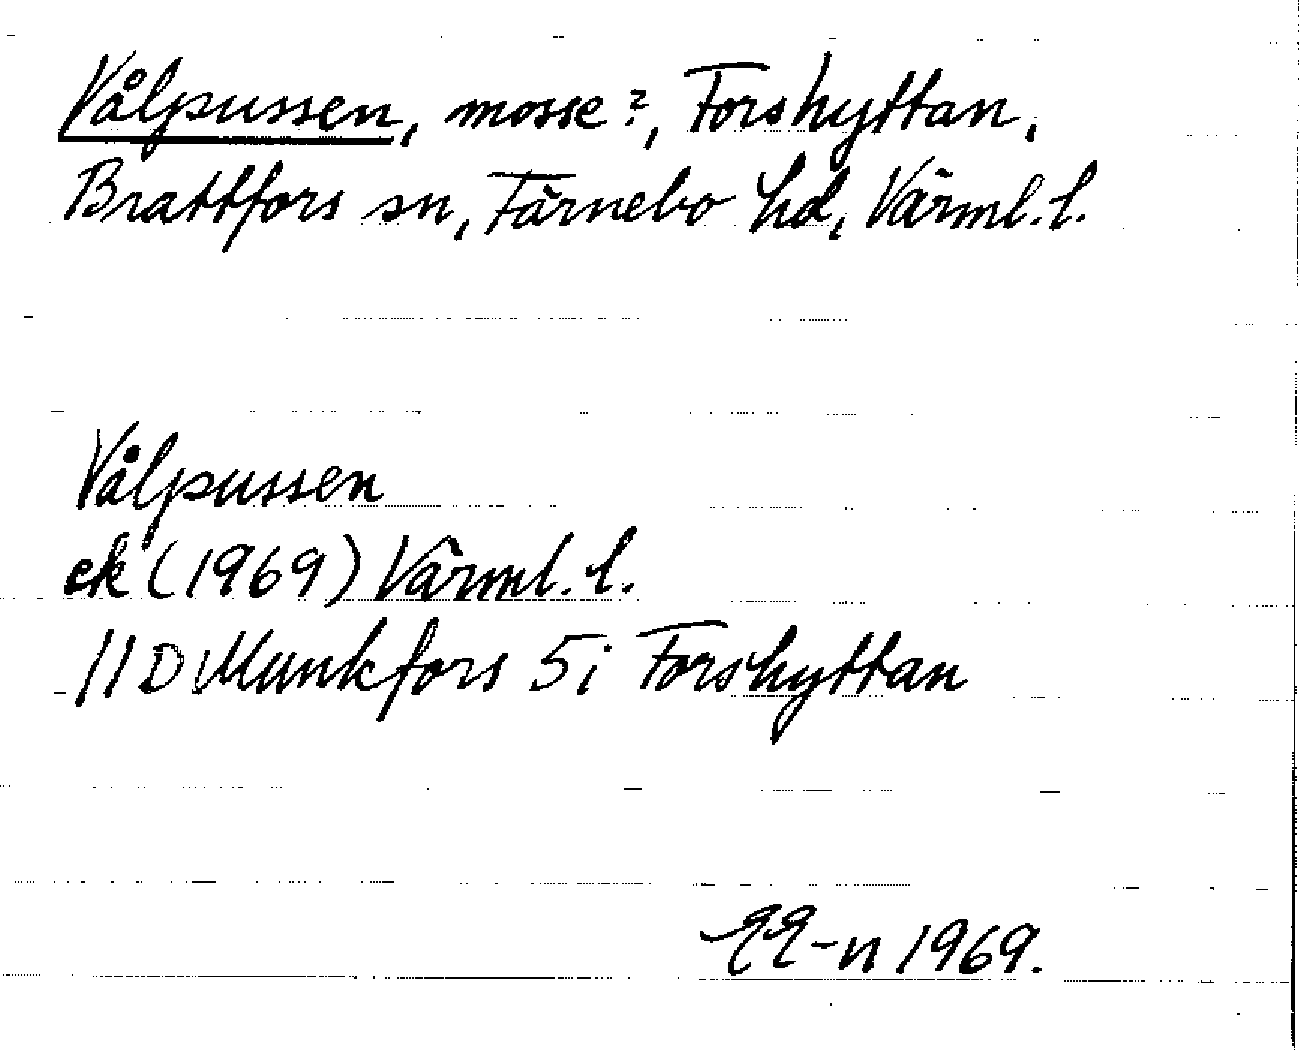 Vålpussen, mosse?, Forshyttan,
Brattfors sn, Färnebo hd, Värml. l.
Vålpussen
ek (1969) Värml. l.
11 D Munkfors 5 i Forshyttan
-n 1969.